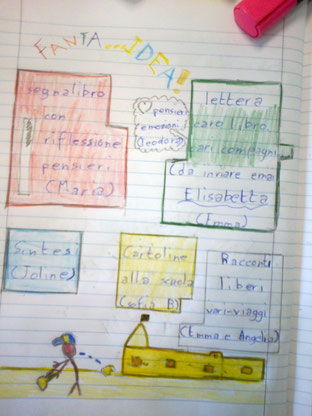 FANTA...IDEA!
segnalibro
con
riflessione
pensieri
(Maria)
pensieri
emozioni
(Teodora)
lettera
caro libro
cari compagni
(da inviare email
Elisabetta
(Emma)
Sintesi
(Joline)
Cartoline
alla scuola
(sofia B)
Racconti
liberi
vari-viaggi
(Emma e Angelica)